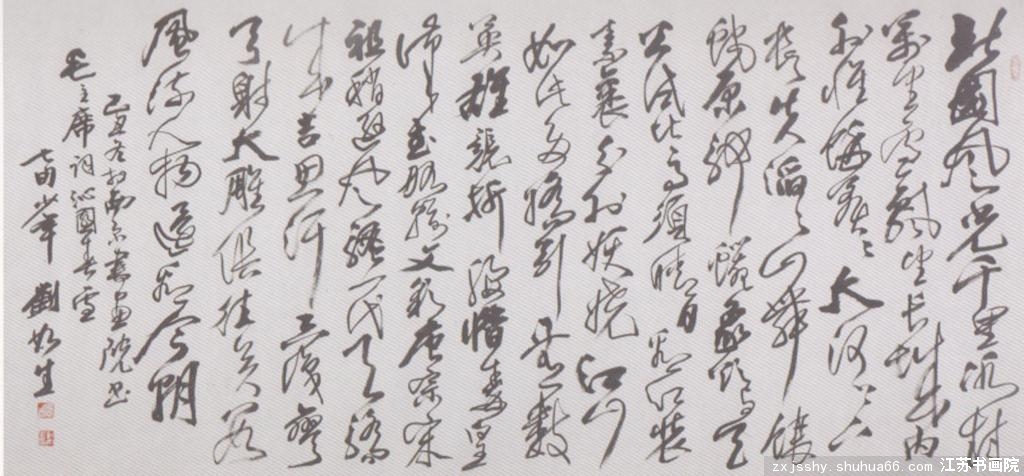 北國風光千里冰封
萬里雪飄望長城內
外惟餘莽々大河上下
頓失滔々山舞銀
蛇原馳蠟象欲與天
公試比高須晴日看紅裝
素裹分外妖嬈江山
如此多嬌引無數
英雄競折腰惜秦皇
漢武略輸文采唐宗宋
祖稍遜風騷一代天驕
成吉思汗只識彎
弓射大雕俱往矣數
風流人物還看今朝
己丑冬於南京書畫院書
毛主席詞沁園春雪
七旬少年 劉如生
zxjsshy.shuhua66.com 江苏书画院